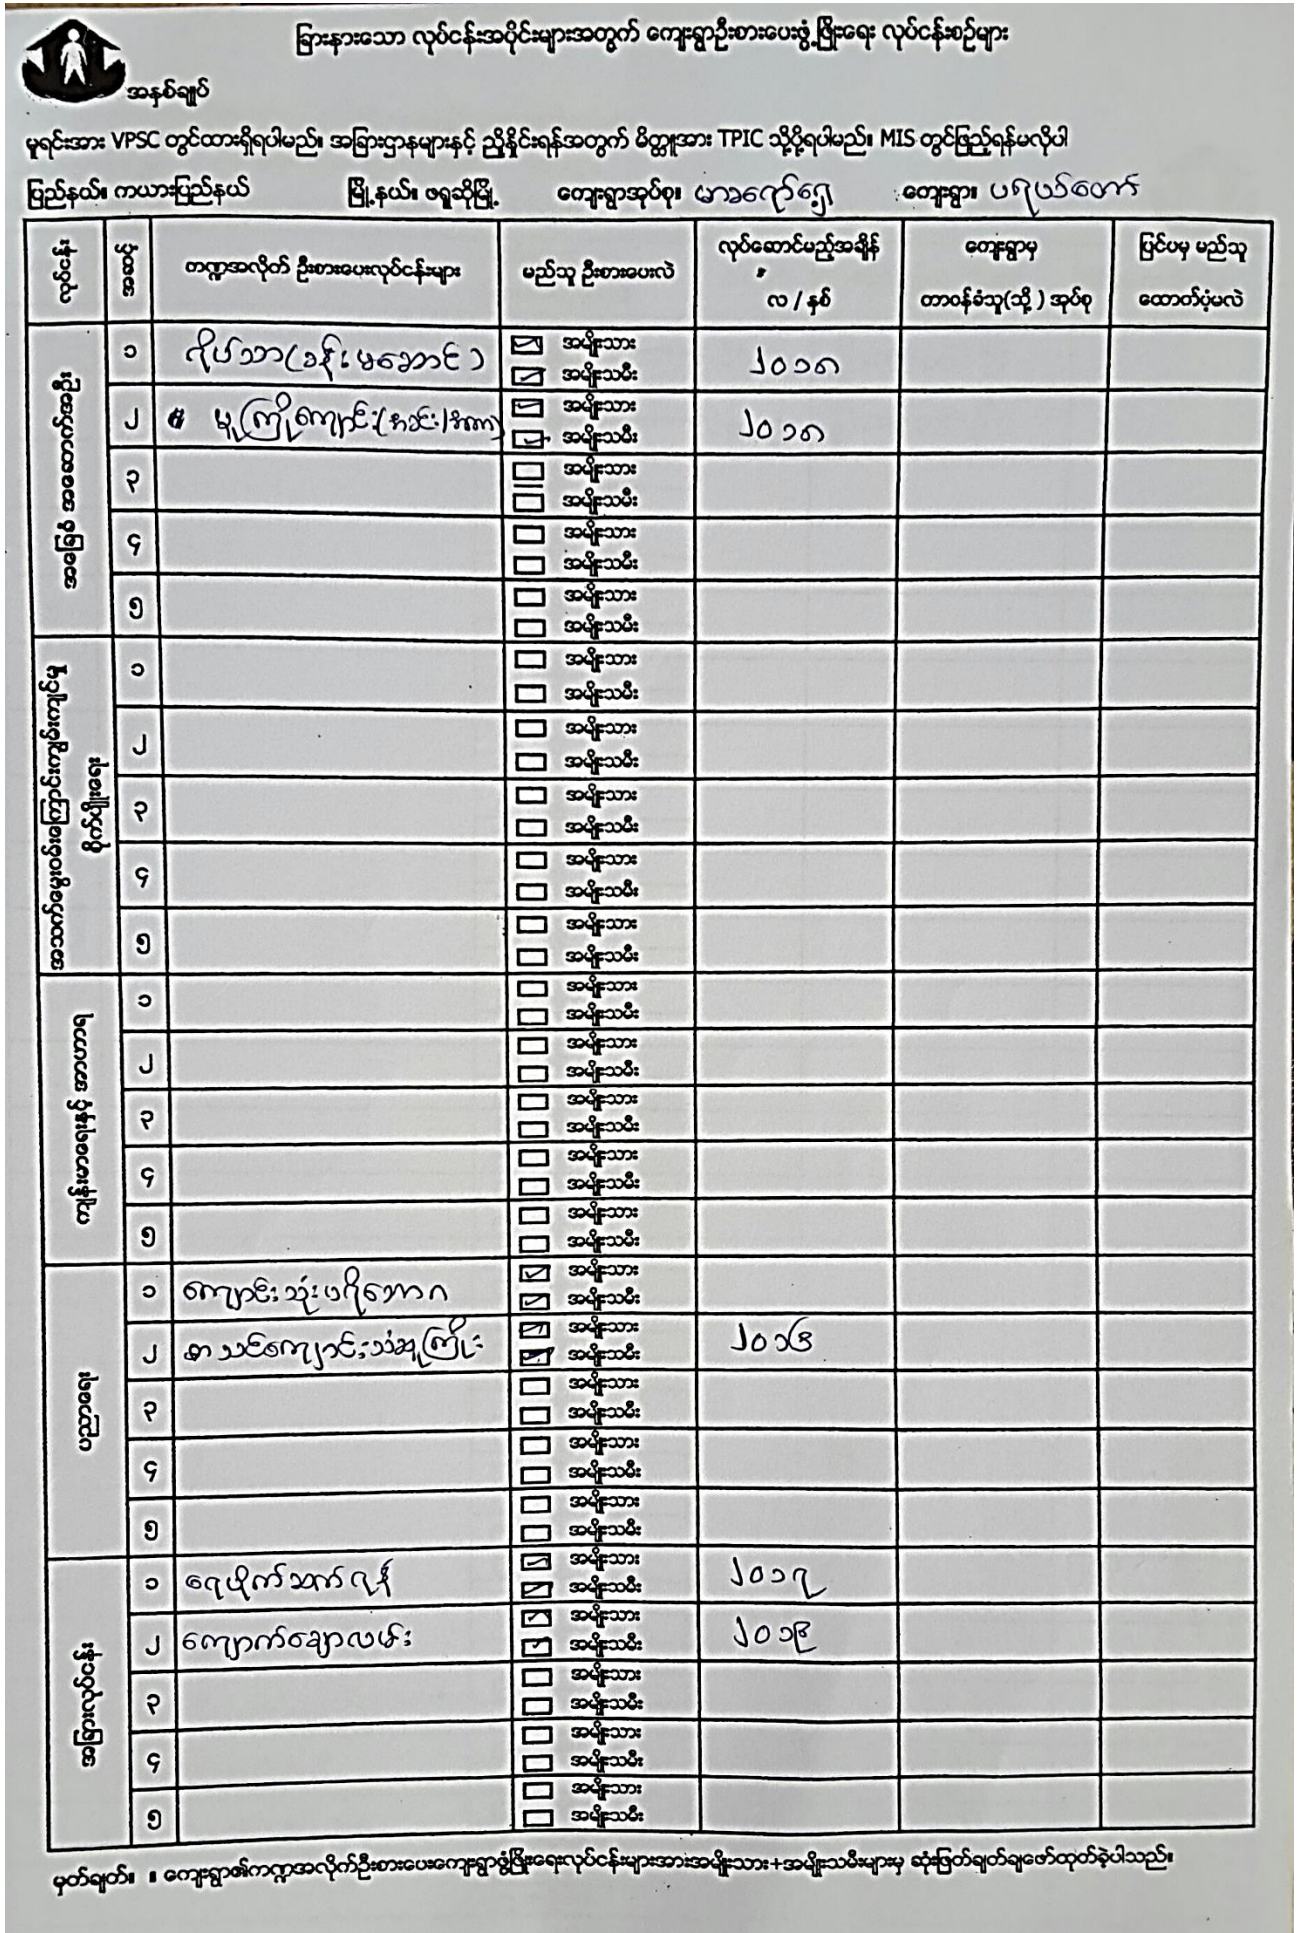 ခြားနားသော လုပ်ငန်းအပိုင်းများအတွက် ကျေးရွာဦးစားပေးဖွံ့ဖြိုးရေး လုပ်ငန်းစဉ်များ
အနှစ်ချုပ်
မူရင်းအား VPSC တွင်ထားရှိရပါမည်။ အခြားဌာနများနှင့် ညှိနှိုင်းရန်အတွက် မိတ္တူအား TPIC သို့ပို့ရပါမည်။ MIS တွင်ဖြည့်ရန်မလိုပါ
ပြည်နယ်။ ကယားပြည်နယ် မြို့နယ်။ ဖရူဆိုမြို့ ကျေးရွာအုပ်စု။ ကျေးရွာ။
လုပ်ငန်း အစောပိုင်း တဏ္ဍအလိုက် ဦးစားပေးလုပ်ငန်းများ မည်သူ ဦးစားပေးလဲ လုပ်ဆောင်မည့်အချိန် လ / နှစ် ကျေးရွာမှ တာဝန်ခံသူ(သို့) အုပ်စု ပြင်ပမှ မည်သူ ထောက်ပံ့မလဲ
၁ ကိုယ်သာ(ခန်းမဆောင်) အမျိုးသား
အမျိုးသမီး ၂၀၁၈
၂ မူကြိုကျောင်း အမျိုးသား
အမျိုးသမီး ၂၀၁၈
၃ အမျိုးသား
အမျိုးသမီး
၄ အမျိုးသား
အမျိုးသမီး
၅ အမျိုးသား
အမျိုးသမီး
၁ အမျိုးသား
အမျိုးသမီး
၂ အမျိုးသား
အမျိုးသမီး
၃ အမျိုးသား
အမျိုးသမီး
၄ အမျိုးသား
အမျိုးသမီး
၅ အမျိုးသား
အမျိုးသမီး
၁ အမျိုးသား
အမျိုးသမီး
၂ အမျိုးသား
အမျိုးသမီး
၃ အမျိုးသား
အမျိုးသမီး
၄ အမျိုးသား
အမျိုးသမီး
၅ အမျိုးသား
အမျိုးသမီး
ပညာရေး
၁ ကျောင်းသုံးပရိဘောဂ အမျိုးသား
အမျိုးသမီး
၂ စာသင်ကျောင်းသံဆူကြိုး အမျိုးသား
အမျိုးသမီး ၂၀၁၆
၃ အမျိုးသား
အမျိုးသမီး
၄ အမျိုးသား
အမျိုးသမီး
၅ အမျိုးသား
အမျိုးသမီး
အခြားလုပ်ငန်း
၁ ရေပိုက်ဆက်ရန် အမျိုးသား
အမျိုးသမီး ၂၀၁၇
၂ ကျောက်ချောလမ်း အမျိုးသား
အမျိုးသမီး ၂၀၁၉
၃ အမျိုးသား
အမျိုးသမီး
၄ အမျိုးသား
အမျိုးသမီး
၅ အမျိုးသား
အမျိုးသမီး
မှတ်ချက်။ ။ ကျေးရွာ၏ကဏ္ဍအလိုက်ဦးစားပေးကျေးရွာဖွံ့ဖြိုးရေးလုပ်ငန်းများအားအမျိုးသား+အမျိုးသမီးများမှ ဆုံးဖြတ်ချက်ချဖော်ထုတ်ခဲ့ပါသည်။